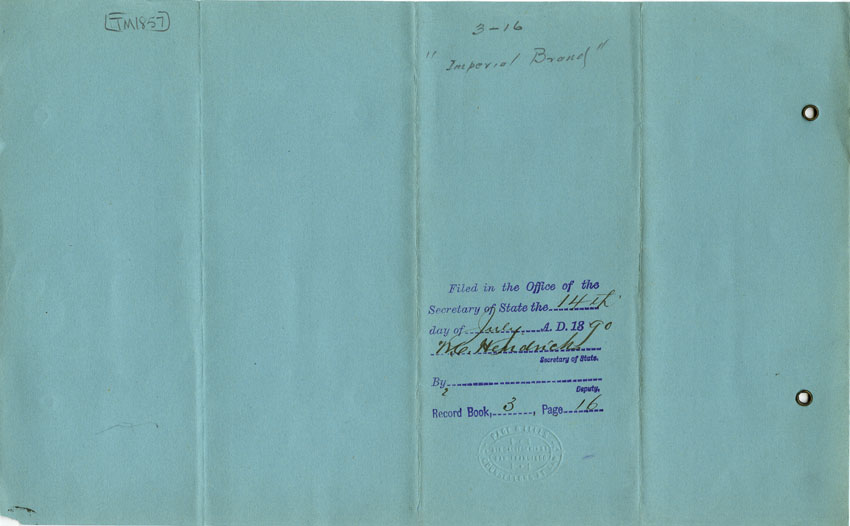 TM1857
3-16
"Imperial Brand"
Filed in the Office of the
Secretary of State the 14th
day of July A. D. 1890
W.C. Hendricks
Secretary of State.
By
Deputy.
Record Book, 3, Page 16